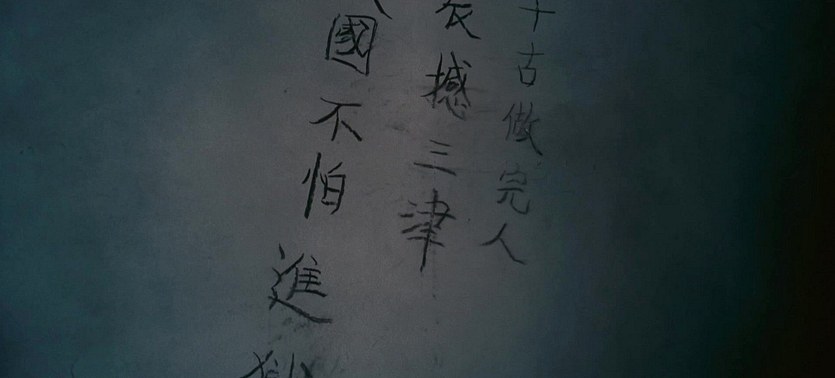 千古做完人
撼三津
國不怕進